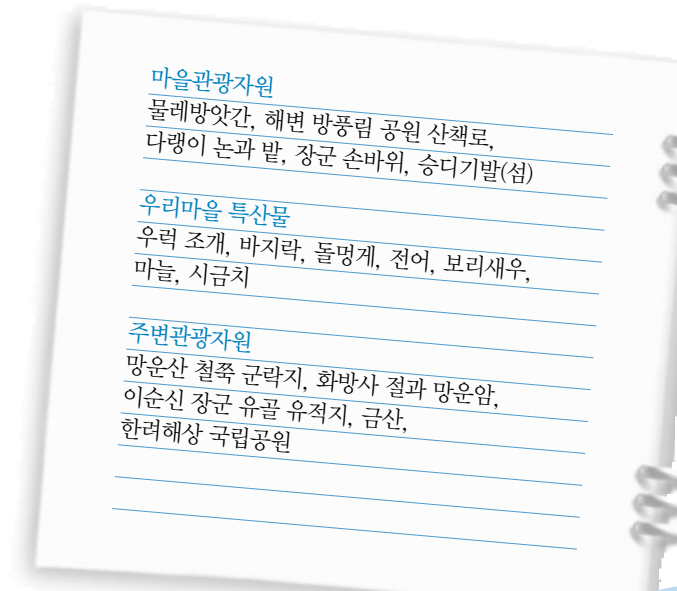 마을관광자원
물레방앗간, 해변 방풍림 공원 산책로,
다랭이 논과 밭, 장군 손바위, 승디기발(섬)
우리마을 특산물
우럭 조개, 바지락, 돌멍게, 전어, 보리새우,
마늘, 시금치
주변관광자원
망운산 철쭉 군락지, 화방사 절과 망운암,
이순신 장군 유골 유적지, 금산,
한려해상 국립공원